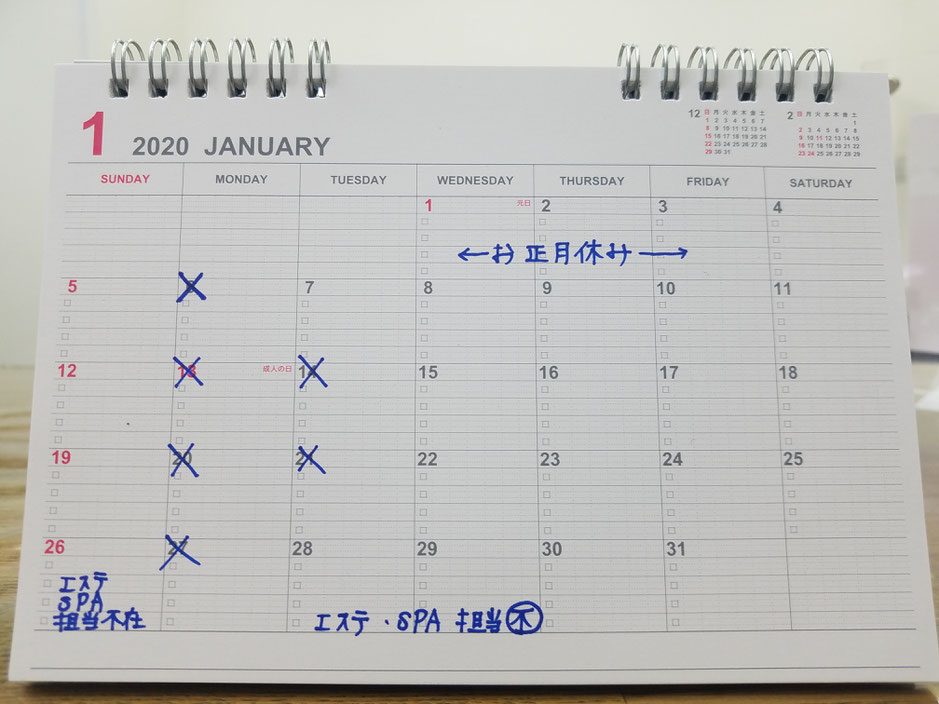 1 2020 JANUARY
12 日 月 火 水 木 金 土
1 2 3 4 5 6 7
8 9 10 11 12 13 14
15 16 17 18 19 20 21
22 23 24 25 26 27 28
29 30 31
2 日 月 火 水 木 金 土
1
2 3 4 5 6 7 8
9 10 11 12 13 14 15
16 17 18 19 20 21 22
23 24 25 26 27 28 29
SUNDAY MONDAY TUESDAY WEDNESDAY THURSDAY FRIDAY SATURDAY
1 元日 2 3 4
←お正月休み→
5 6 7 8 9 10 11
12 13 成人の日 14 15 16 17 18
19 20 21 22 23 24 25
26 27 28 29 30 31
エステ
SPA
担当不在
エステ・SPA 担当不